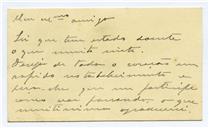 Meu Ex.mo amigo
Sei que tem estado doente
o que muito sinto.
Desejo de todo o coração um
rapido restabelecimento e
peço-lhe que me participe
como vai passando, o que
muitissimo agradecerei.